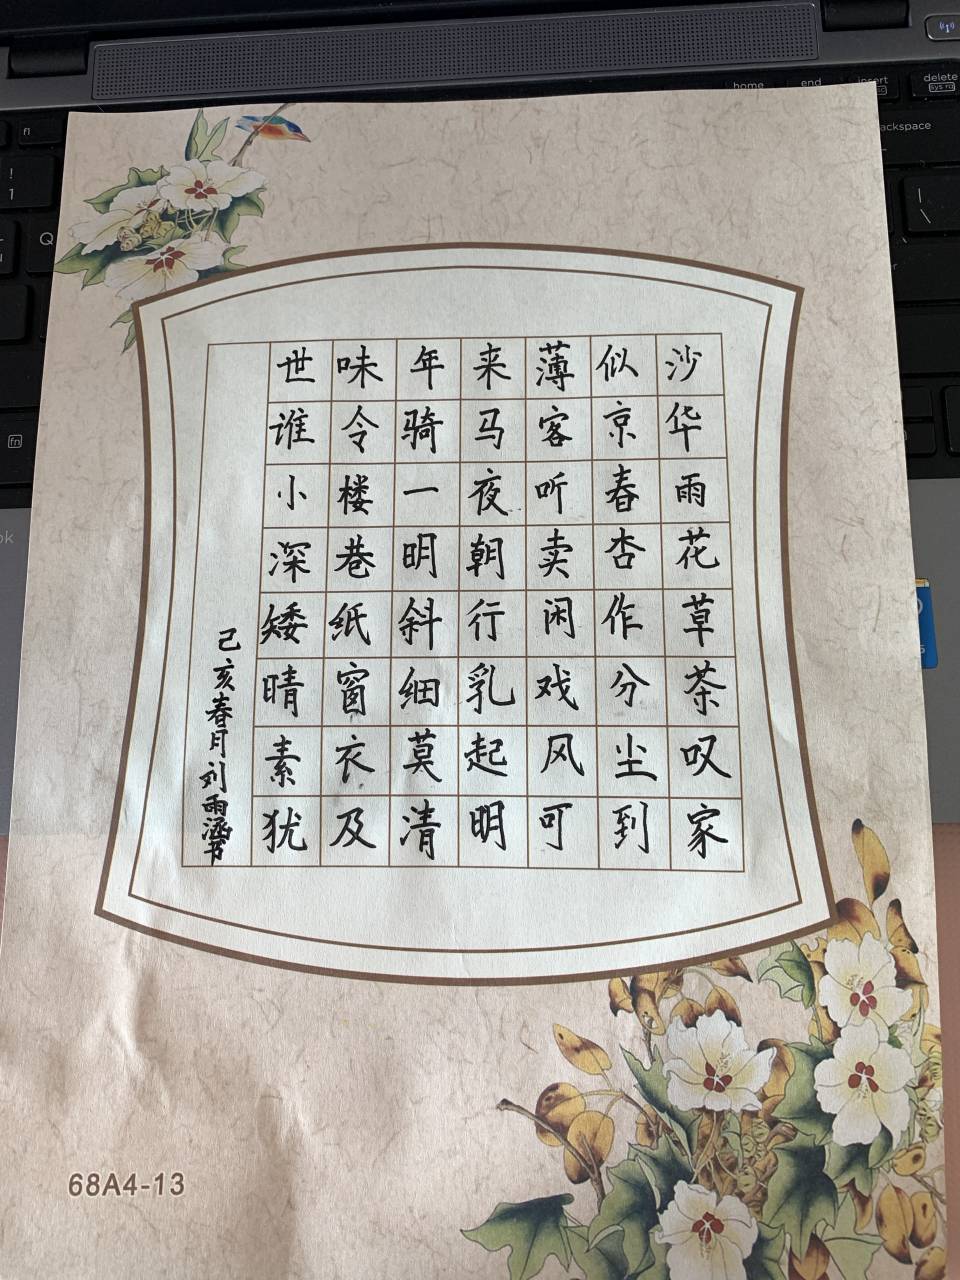 home end insert delete
sys rq
ackspace
!
1
Q
|
\
fn
世味年来薄似沙
谁令骑马客京华
小楼一夜听春雨
深巷明朝卖杏花
矮纸斜行闲作草
晴窗细乳戏分茶
素衣莫起风尘叹
犹及清明可到家
己亥春月刘雨涵书
68A4-13